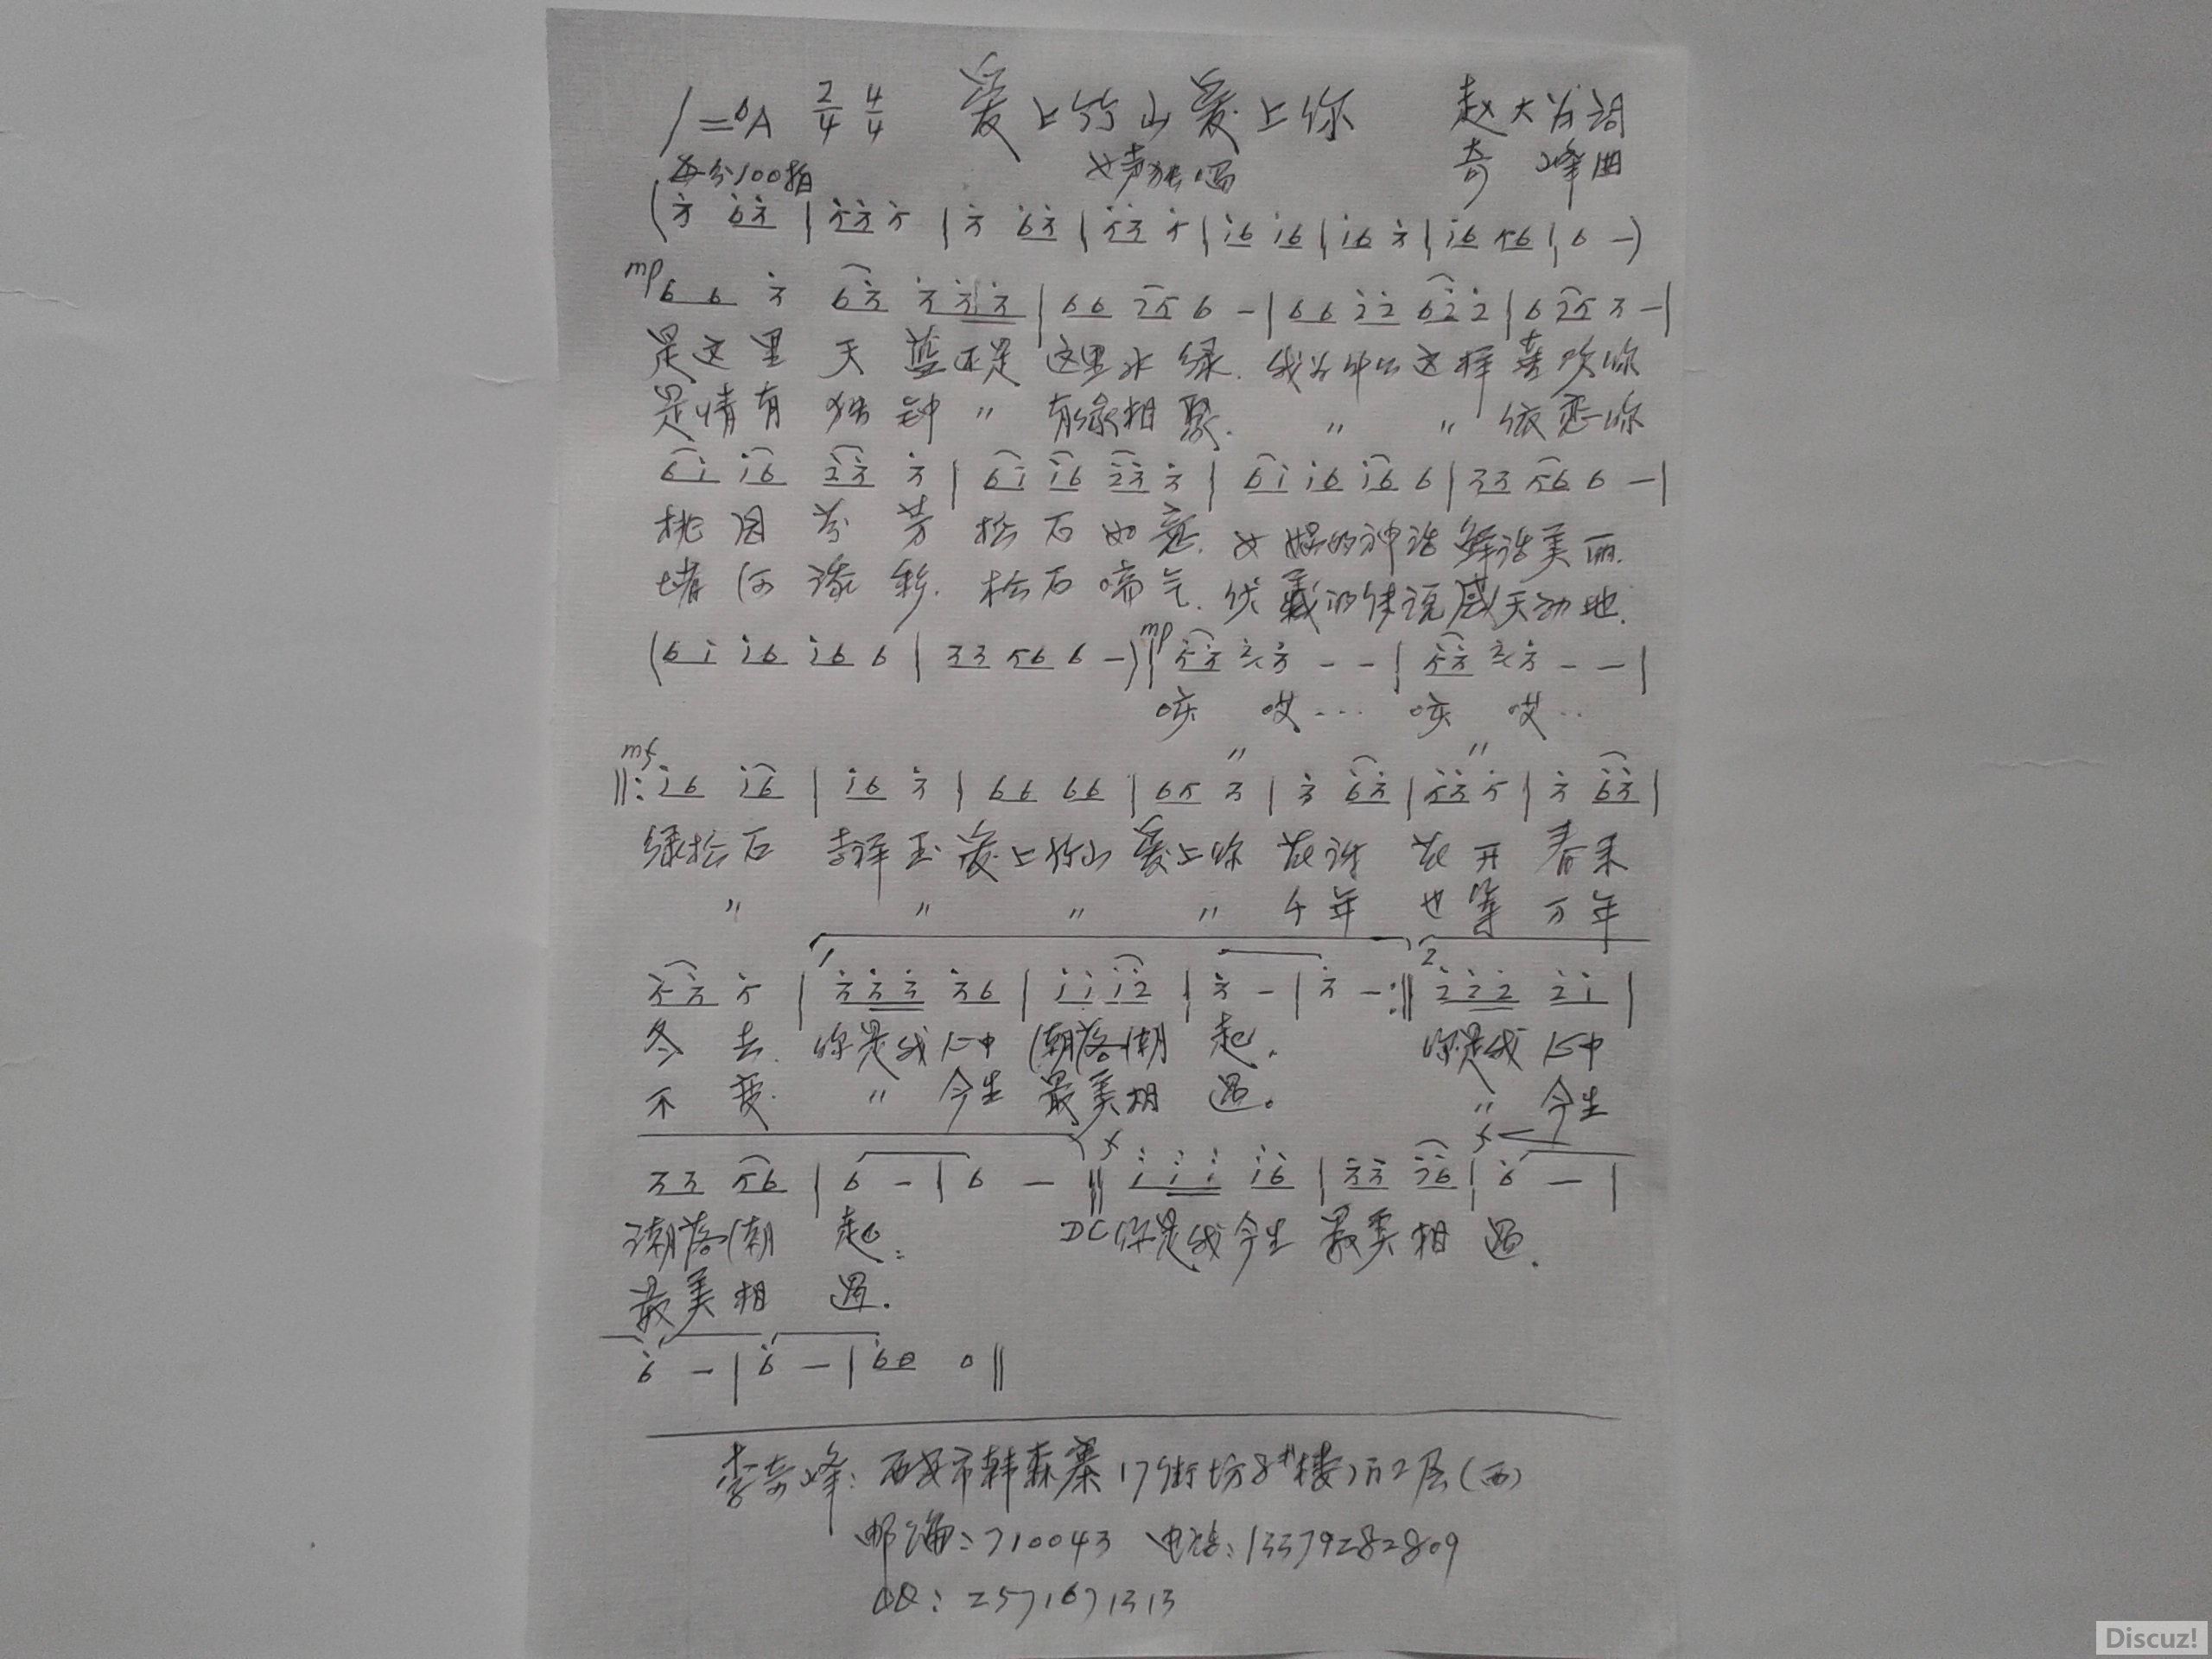 1=♭A 2/4 4/4 爱上竹山爱上你 赵大为词
每分100拍 女声独唱 奇峰曲
(3̇ 6̇3̇ | 5̇3̇ 5̇ | 3̇ 6̇3̇ | 5̇3̇ 5̇ | 1̇6 1̇6 | 1̇6 3̇ | 1̇6 56 | 6 -)
mp 6 6 3̇ 63̇ 3̇ 3̇3̇ | 66 25 6 - | 66 2̇2̇ 62̇ 2̇ | 6 25 3 - |
是这里 天 蓝还是 这里水 绿. 我为什么这样喜欢你
是情有 独 钟 〃 有缘相 聚. 〃 〃 依恋你
61̇ 1̇6 2̇3̇ 3̇ | 61̇ 1̇6 2̇3̇ 3̇ | 61̇ 1̇6 1̇6 6 | 33 56 6 - |
桃园 芬 芳 松石如意. 女娲的神话 鲜活美丽.
堵河 漾彩. 松石 气. 伏羲的传说感天动地.
(61̇ 1̇6 1̇6 6 | 33 56 6 -) | mp 5̇3̇ 3̇ - - | 5̇3̇ 3̇ - - |
咳 哎… 咳 哎..
〃 〃
mf
‖: 1̇6 1̇6 | 1̇6 3̇ | 66 66 | 65 3 | 3̇ 63̇ | 5̇3̇ 5̇ | 3̇ 6̇3̇ |
绿松石 吉祥玉 爱上竹山 爱上你 花谢 花开 春来
〃 〃 〃 〃 千年 也等 万年
5̇3̇ 5̇ | 1 3̇3̇3̇ 3̇6 | 1̇1̇ 1̇2̇ | 3̇ - | 3̇ - :‖ 2 2̇2̇2̇ 2̇1̇ |
冬 去. 你是我心中 潮落潮 起. 你是我 心中
不 变. 〃 今生 最美相 遇. 〃 今生
33 56 | 6 - | 6 - ‖ f 1̇ 1̇1̇ 1̇6 | 3̇3̇ 1̇6 | f 6̇ - |
潮落潮 起. DC 你是我今生 最美相 遇.
最美相 遇.
6̇ - | 6̇ - | 6̇0 0 ‖
李奇峰: 西安市韩森寨17街坊8#楼1门2层(西)
邮编: 710043 电话: 13379282809
QQ: 2571671313
Discuz!